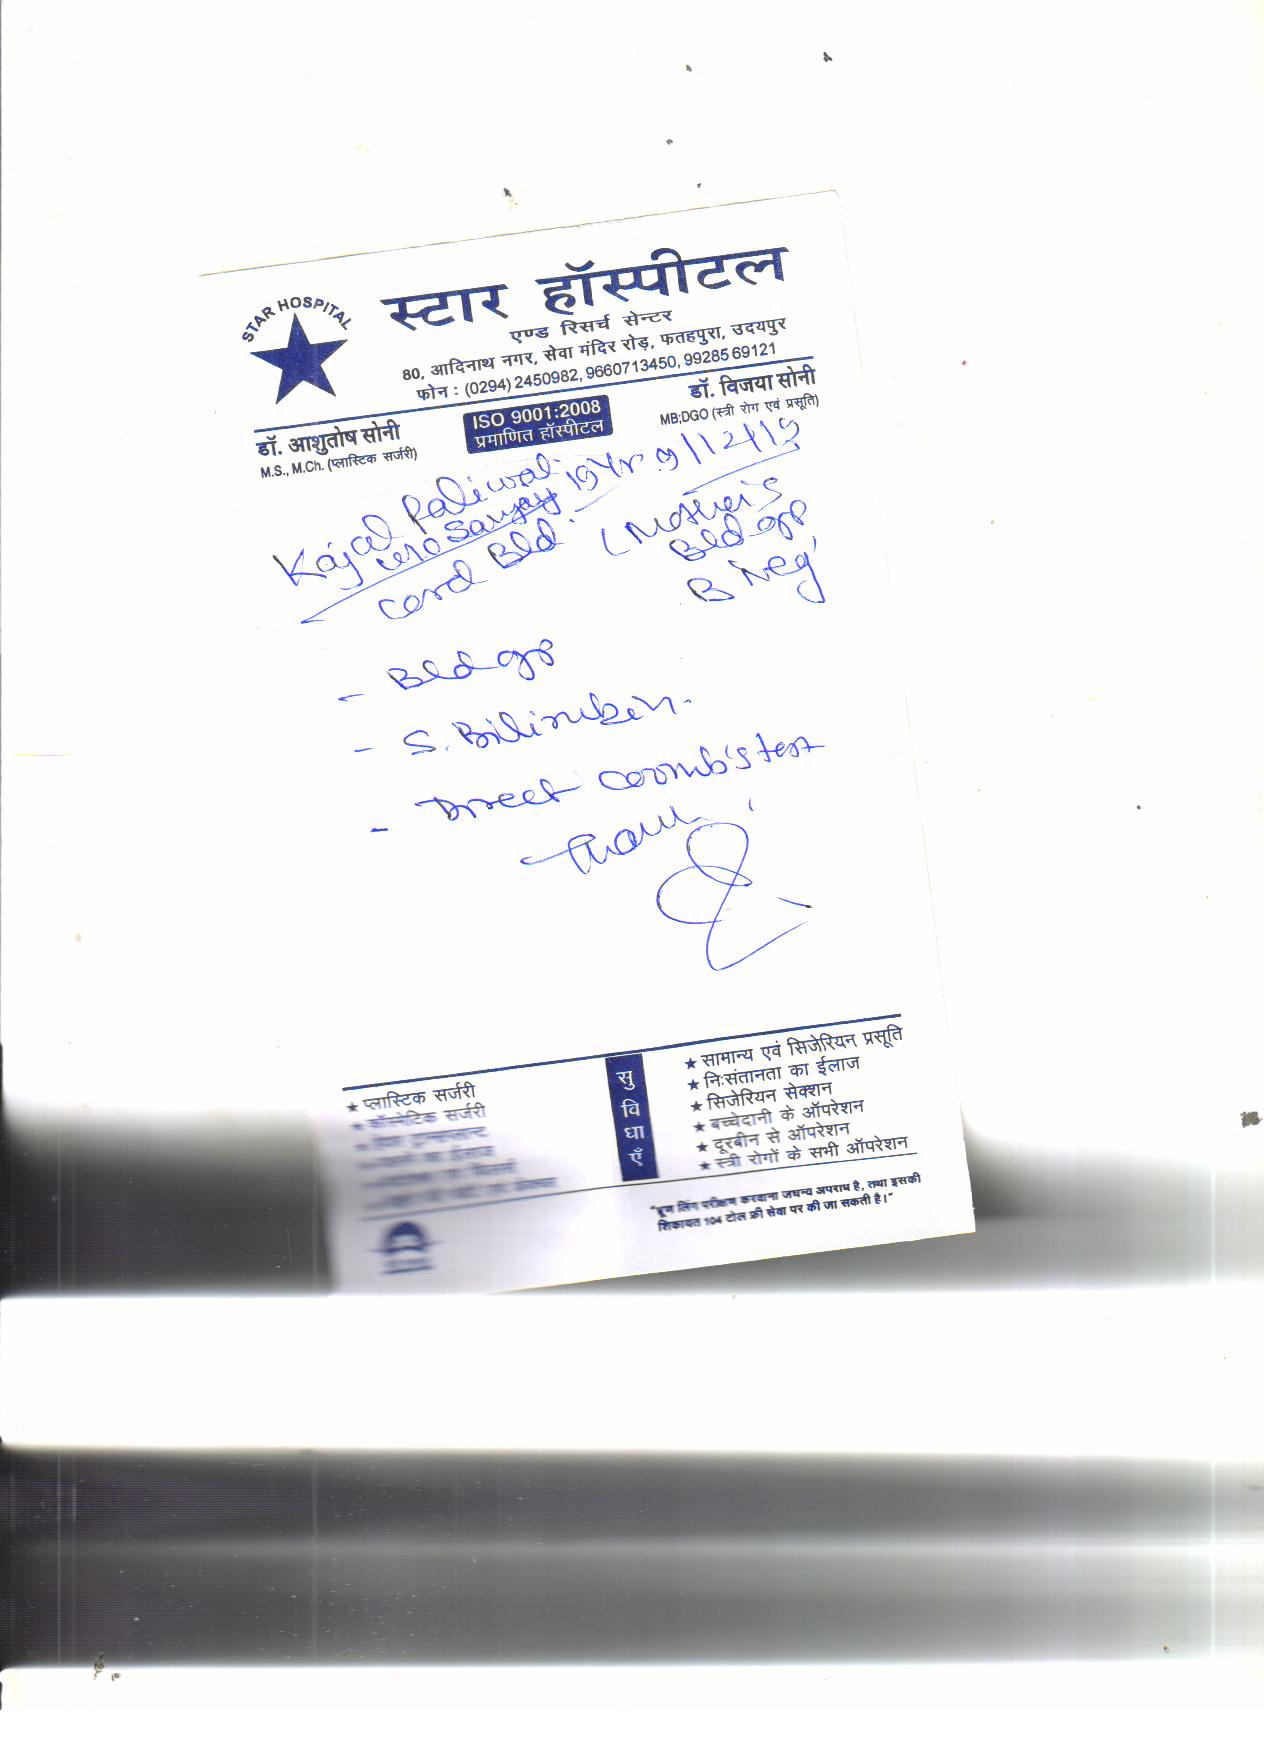 STAR HOSPITAL
स्टार हॉस्पीटल
एण्ड रिसर्च सेन्टर
80, आदिनाथ नगर, सेवा मंदिर रोड़, फतहपुरा, उदयपुर
फोन : (0294) 2450982, 9660713450, 99285 69121
डॉ. आशुतोष सोनी
M.S., M.Ch. (प्लास्टिक सर्जरी)
ISO 9001:2008
प्रमाणित हॉस्पीटल
डॉ. विजया सोनी
MB;DGO (स्त्री रोग एवं प्रसूति)
Kajal Paliwal 19 Yr 9/12/19
w/o Sanjay
Cord Bld (Mother's
Bld gp
B Neg)
- Bld gp
- S. Bilirubin
- Direct Coomb's test
Thank
★ प्लास्टिक सर्जरी
★ कॉस्मेटिक सर्जरी
सुविधाएँ
★ सामान्य एवं सिजेरियन प्रसूति
★ निःसंतानता का ईलाज
★ सिजेरियन सेक्शन
★ बच्चेदानी के ऑपरेशन
★ दूरबीन से ऑपरेशन
★ स्त्री रोगों के सभी ऑपरेशन
"भ्रूण लिंग परीक्षण करवाना जघन्य अपराध है, तथा इसकी
शिकायत 104 टोल फ्री सेवा पर की जा सकती है।"